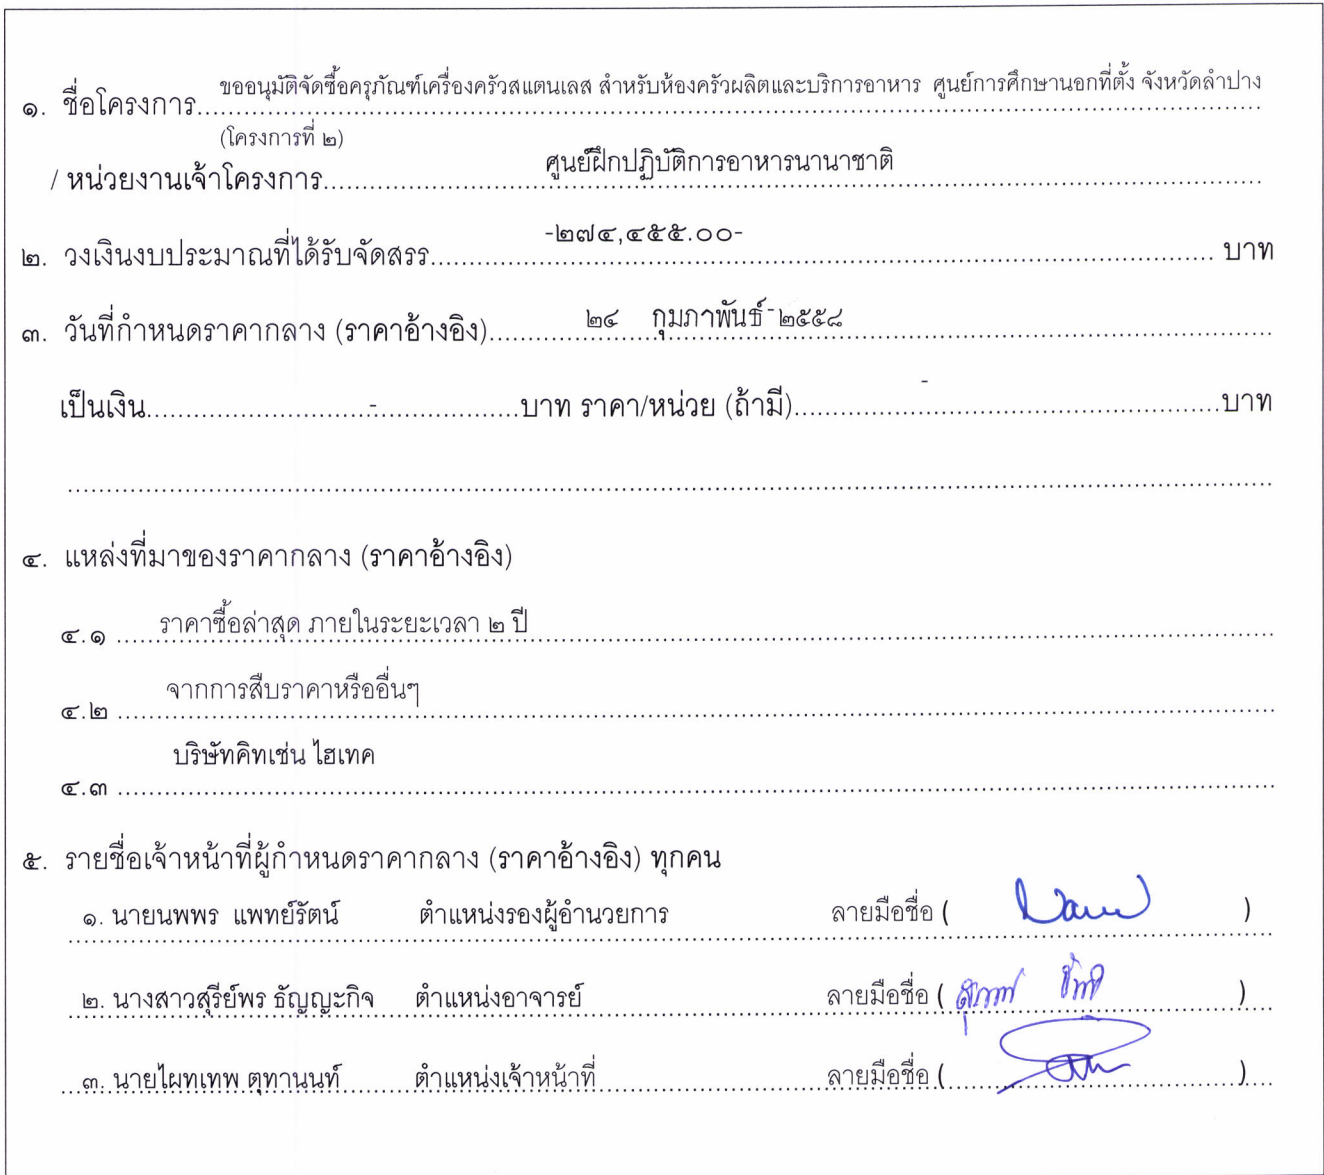 ๑. ชื่อโครงการ ขออนุมัติจัดซื้อครุภัณฑ์เครื่องครัวสแตนเลส สำหรับห้องครัวผลิตและบริการอาหาร ศูนย์การศึกษานอกที่ตั้ง จังหวัดลำปาง
(โครงการที่ ๒)
/ หน่วยงานเจ้าโครงการ ศูนย์ฝึกปฏิบัติการอาหารนานาชาติ
๒. วงเงินงบประมาณที่ได้รับจัดสรร -๒๗๔,๔๕๕.๐๐- บาท
๓. วันที่กำหนดราคากลาง (ราคาอ้างอิง) ๒๔ กุมภาพันธ์ ๒๕๕๘
เป็นเงิน - บาท ราคา/หน่วย (ถ้ามี) - บาท
๔. แหล่งที่มาของราคากลาง (ราคาอ้างอิง)
๔.๑ ราคาซื้อล่าสุด ภายในระยะเวลา ๒ ปี
๔.๒ จากการสืบราคาหรืออื่นๆ
๔.๓ บริษัทคิทเช่น ไฮเทค
๕. รายชื่อเจ้าหน้าที่ผู้กำหนดราคากลาง (ราคาอ้างอิง) ทุกคน
๑. นายนพพร แพทย์รัตน์ ตำแหน่งรองผู้อำนวยการ ลายมือชื่อ ( )
๒. นางสาวสุรีย์พร ธัญญะกิจ ตำแหน่งอาจารย์ ลายมือชื่อ ( )
๓. นายไผทเทพ ตุทานนท์ ตำแหน่งเจ้าหน้าที่ ลายมือชื่อ ( )